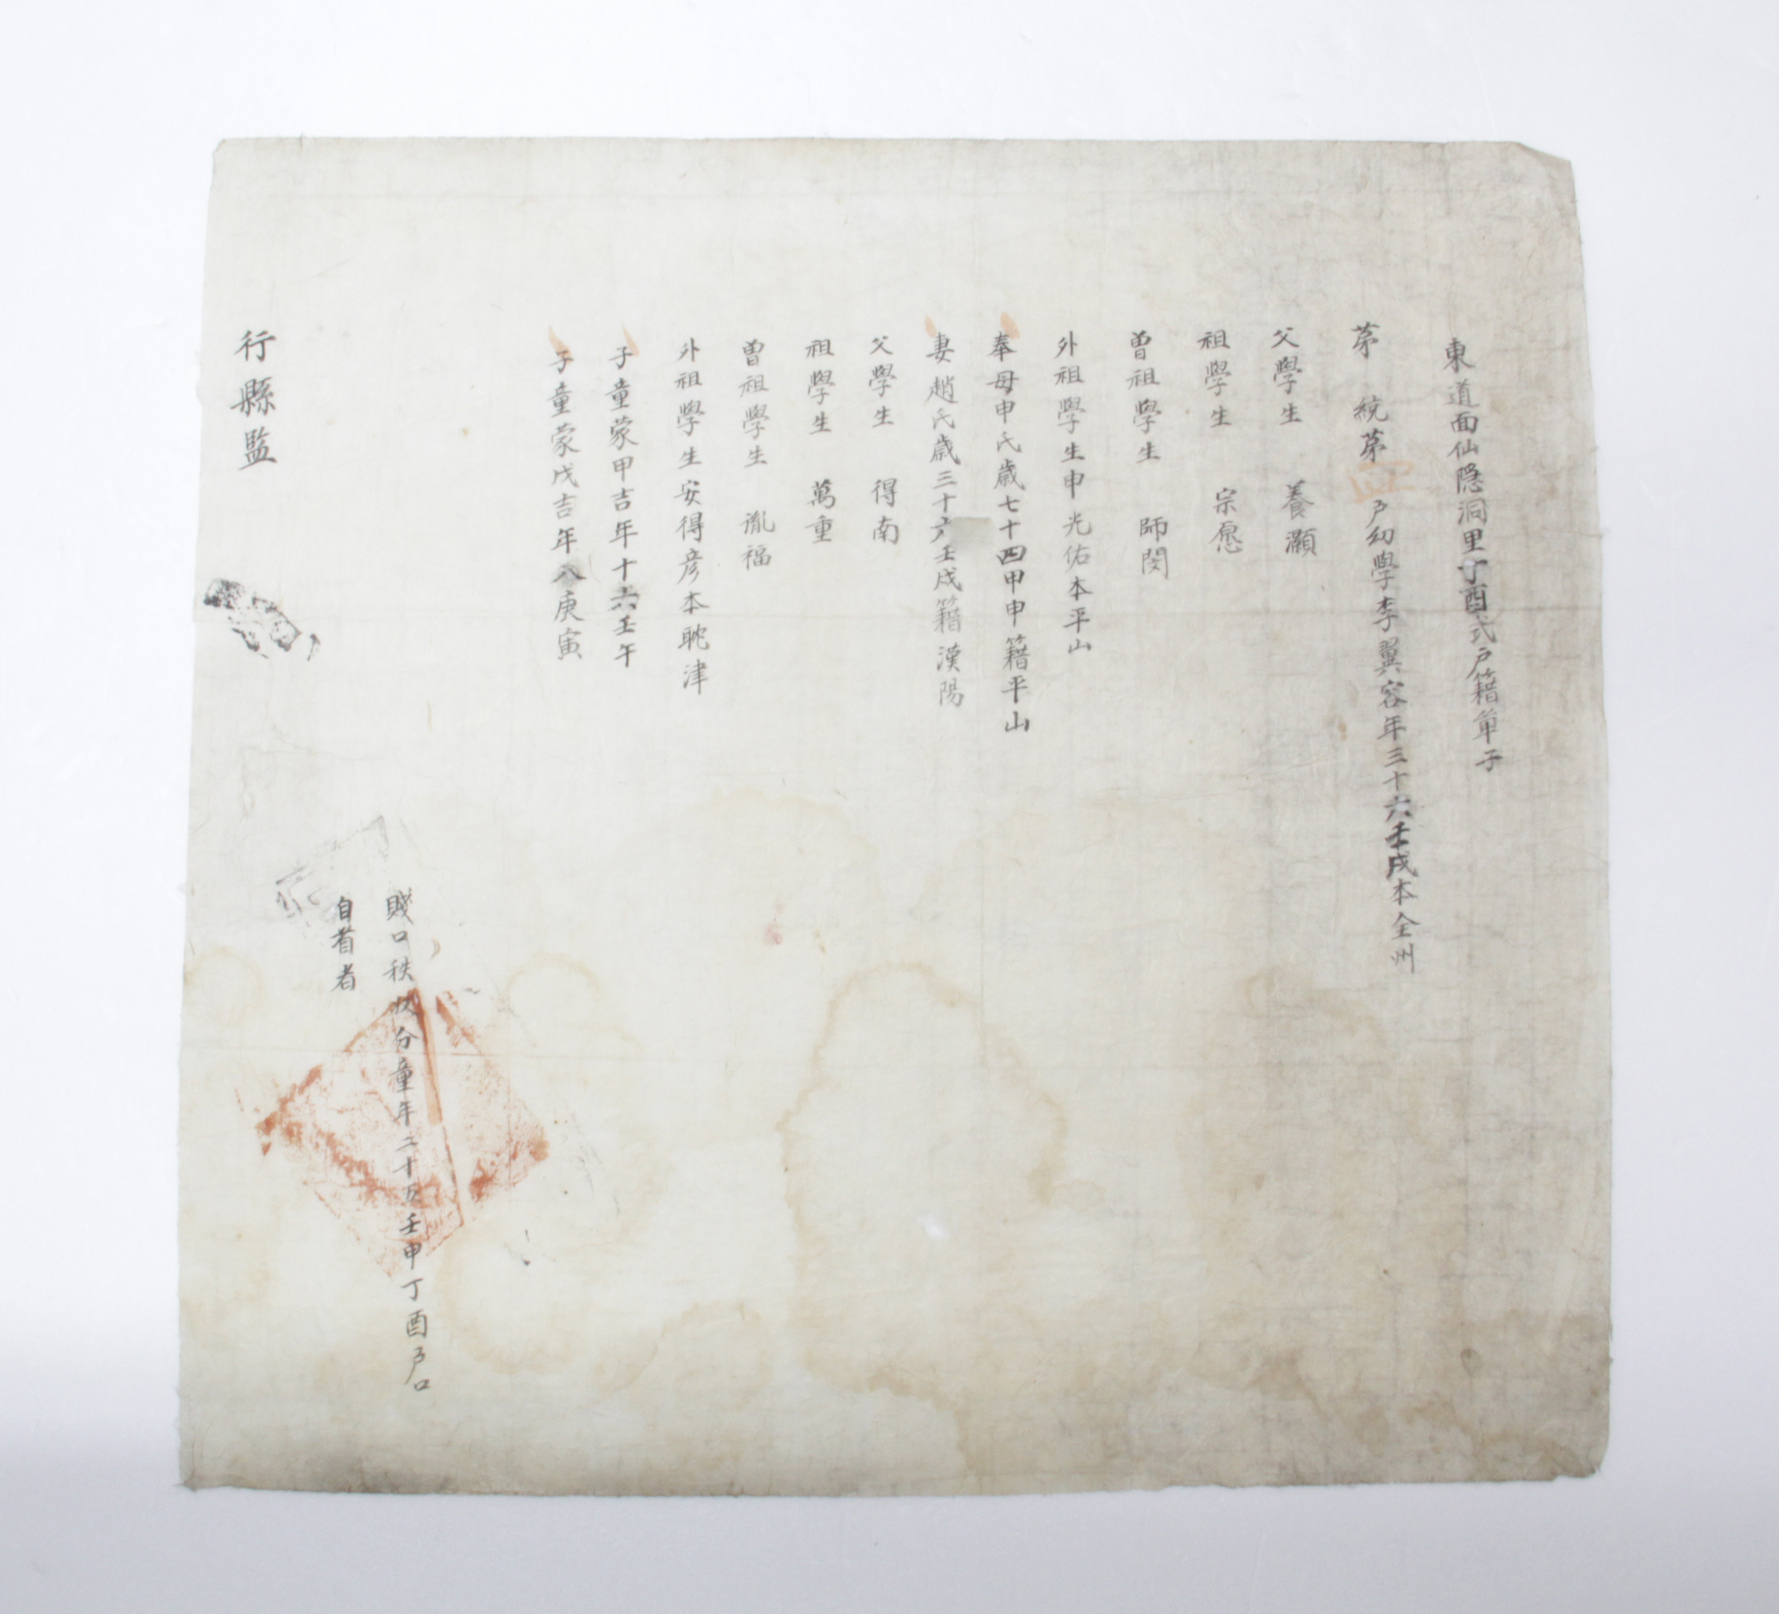 東道面仙隐洞里丁酉式戶籍单子
茅 統茅 四 戶幼學李翼容年三十六壬戌本全州
父學生 養灝
祖學生 宗愿
曽祖學生 師閔
外祖學生申光佑本平山
奉母申氏歲七十四甲申籍平山
妻趙氏歲三十六壬戌籍漢陽
父學生 得南
祖學生 萬重
曽祖學生 胤福
外祖學生安得彦本耽津
子童蒙甲吉年十六壬午
子童蒙戊吉年八庚寅
賤口秩 分童年二十五壬申丁酉戶口
自首者
行縣監